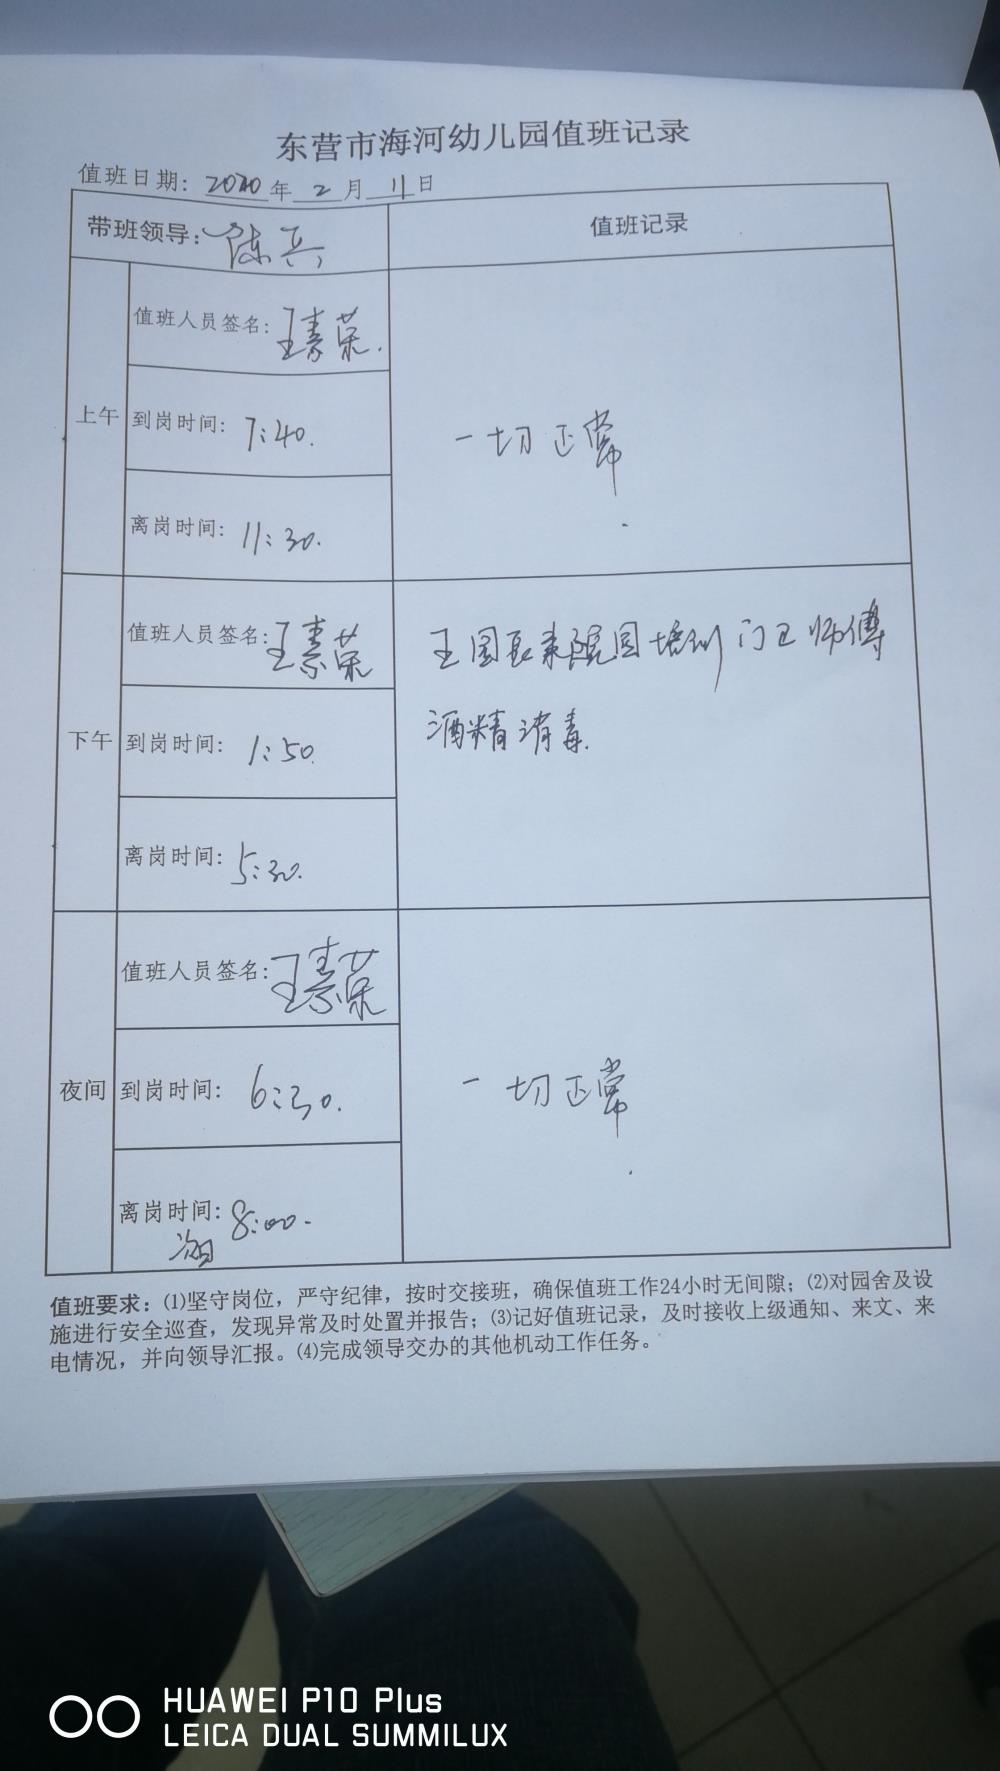 东营市海河幼儿园值班记录
值班日期: 2020年2月11日
带班领导: 陈兵
值班记录
上午
值班人员签名: 王素荣.
到岗时间: 7:40.
离岗时间: 11:30.
一切正常.
下午
值班人员签名: 王素荣
到岗时间: 1:50.
离岗时间: 5:30.
王园长来院园培训门卫师傅
酒精消毒.
夜间
值班人员签名: 王素荣
到岗时间: 6:30.
离岗时间: 8:00.
一切正常.
值班要求: ⑴坚守岗位，严守纪律，按时交接班，确保值班工作24小时无间隙；⑵对园舍及设
施进行安全巡查，发现异常及时处置并报告；⑶记好值班记录，及时接收上级通知、来文、来
电情况，并向领导汇报。⑷完成领导交办的其他机动工作任务。
HUAWEI P10 Plus
LEICA DUAL SUMMILUX